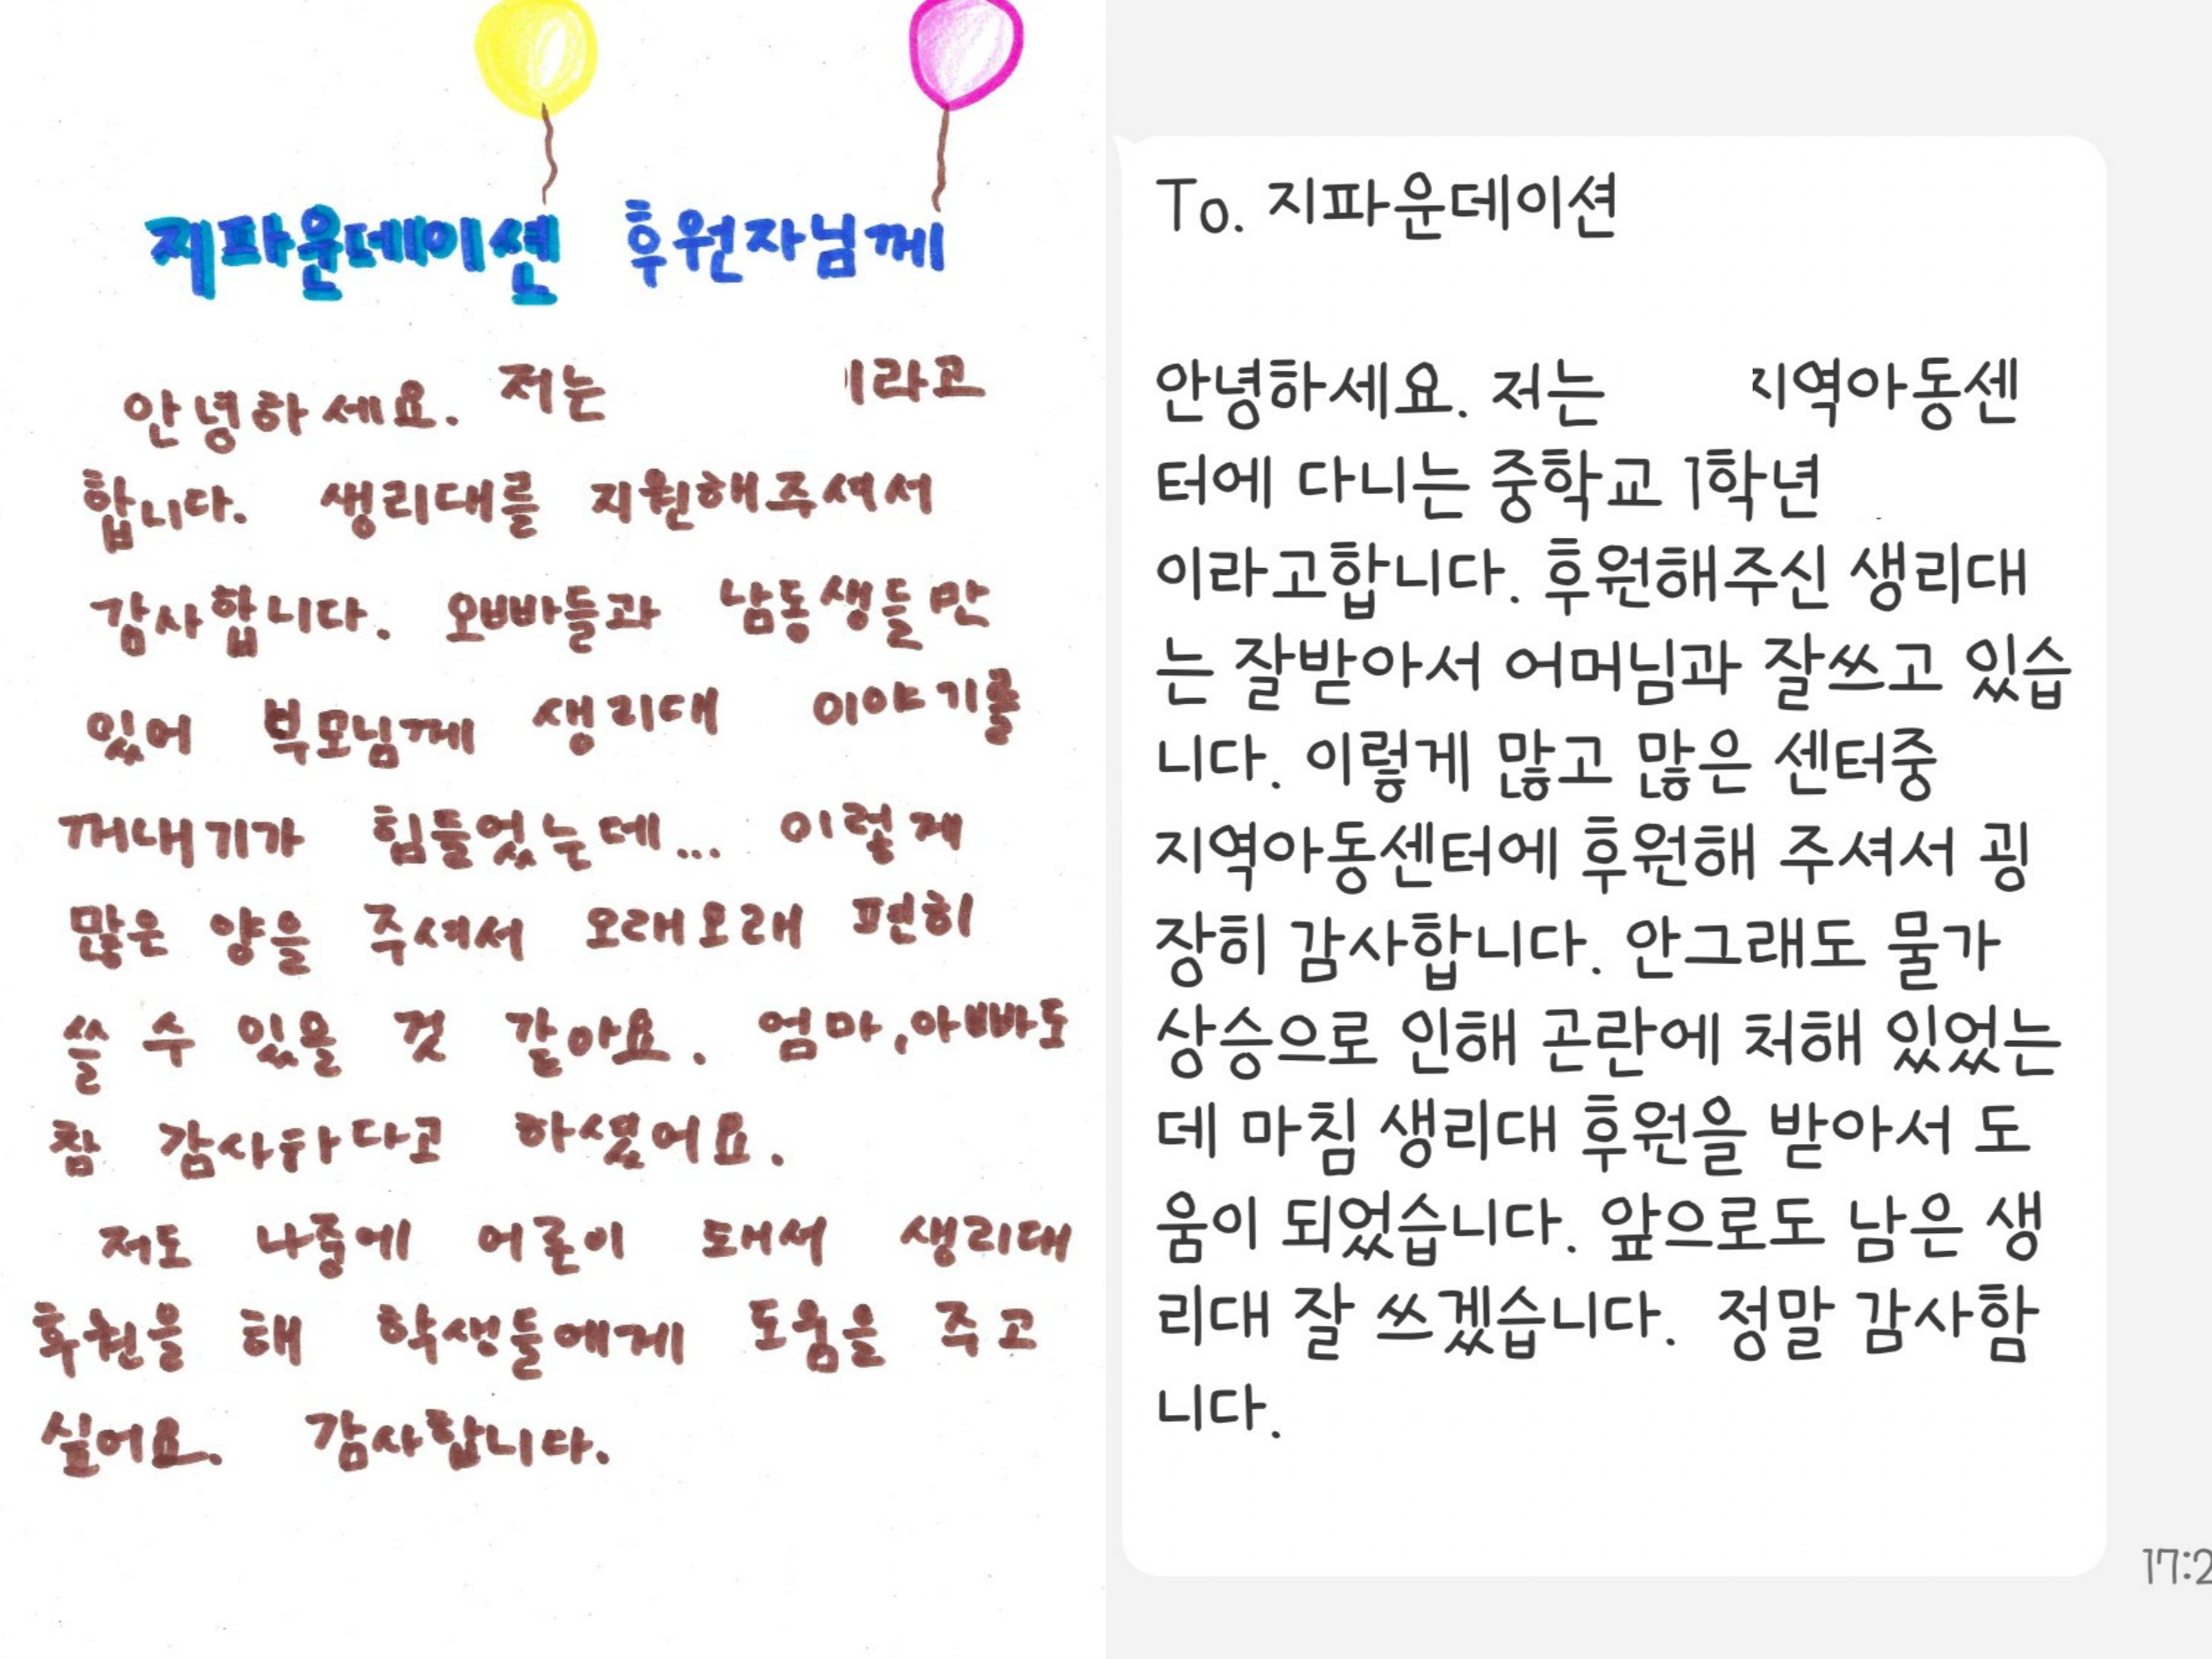 지파운데이션 후원자님께
안녕하세요. 저는 이라고
합니다. 생리대를 지원해주셔서
감사합니다. 오빠들과 남동생들만
있어 부모님께 생리대 이야기를
꺼내기가 힘들었는데... 이렇게
많은 양을 주셔서 오래오래 편히
쓸 수 있을 것 같아요. 엄마,아빠도
참 감사하다고 하셨어요.
저도 나중에 어른이 돼서 생리대
후원을 해 학생들에게 도움을 주고
싶어요. 감사합니다.
To. 지파운데이션
안녕하세요. 저는 지역아동센
터에 다니는 중학교 1학년
이라고합니다. 후원해주신 생리대
는 잘받아서 어머님과 잘쓰고 있습
니다. 이렇게 많고 많은 센터중
지역아동센터에 후원해 주셔서 굉
장히 감사합니다. 안그래도 물가
상승으로 인해 곤란에 처해 있었는
데 마침 생리대 후원을 받아서 도
움이 되었습니다. 앞으로도 남은 생
리대 잘 쓰겠습니다. 정말 감사함
니다.
17:2